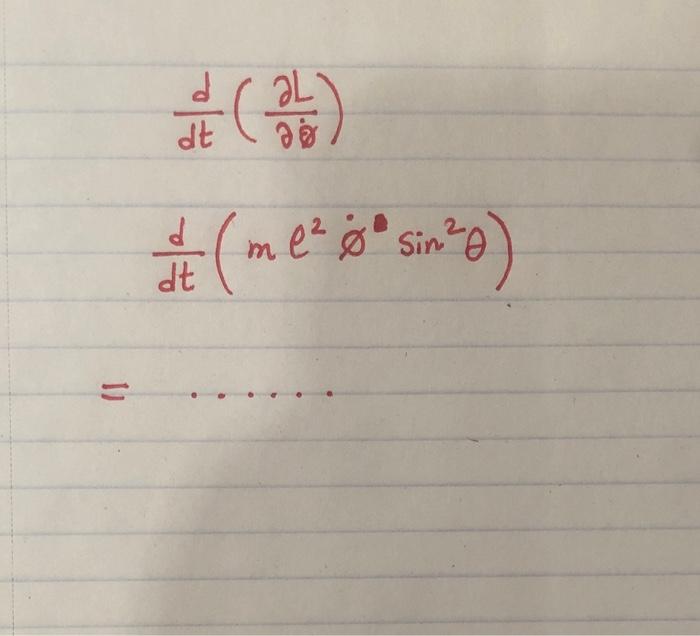 d/dt (∂L/∂φ̇)
d/dt (m ℓ² φ̇ sin²θ)
= ......